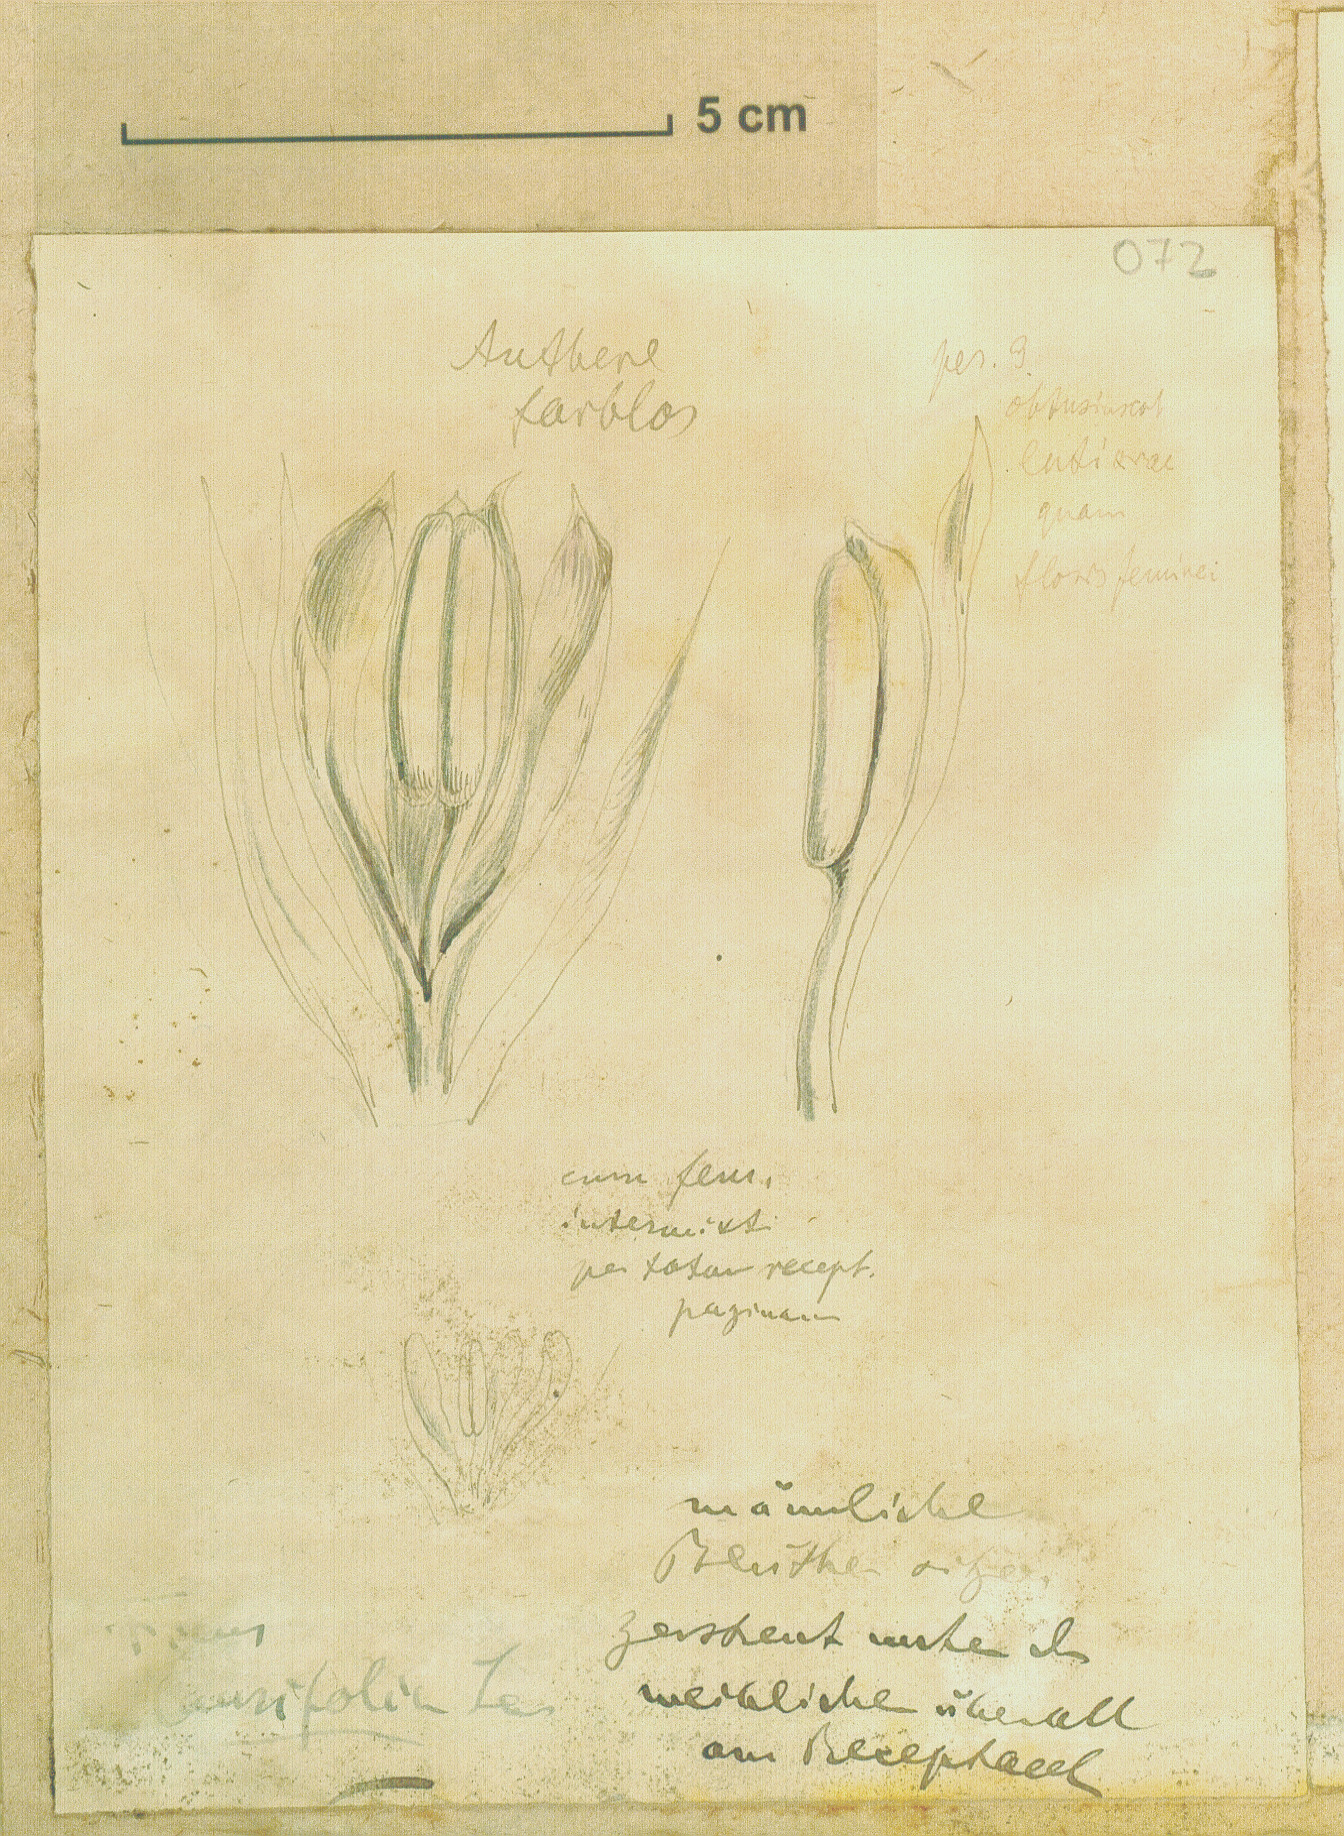 5 cm
072
Anthere
farblos
per. 9
obtusiuscul
latiora
quam
floris feminei
cum fem.
intermixti
per totam recept.
paginam
männliche
Blüthen sitzen
zerstreut unter d
weibliche überall
am Receptacel
Ficus
laurifolia La